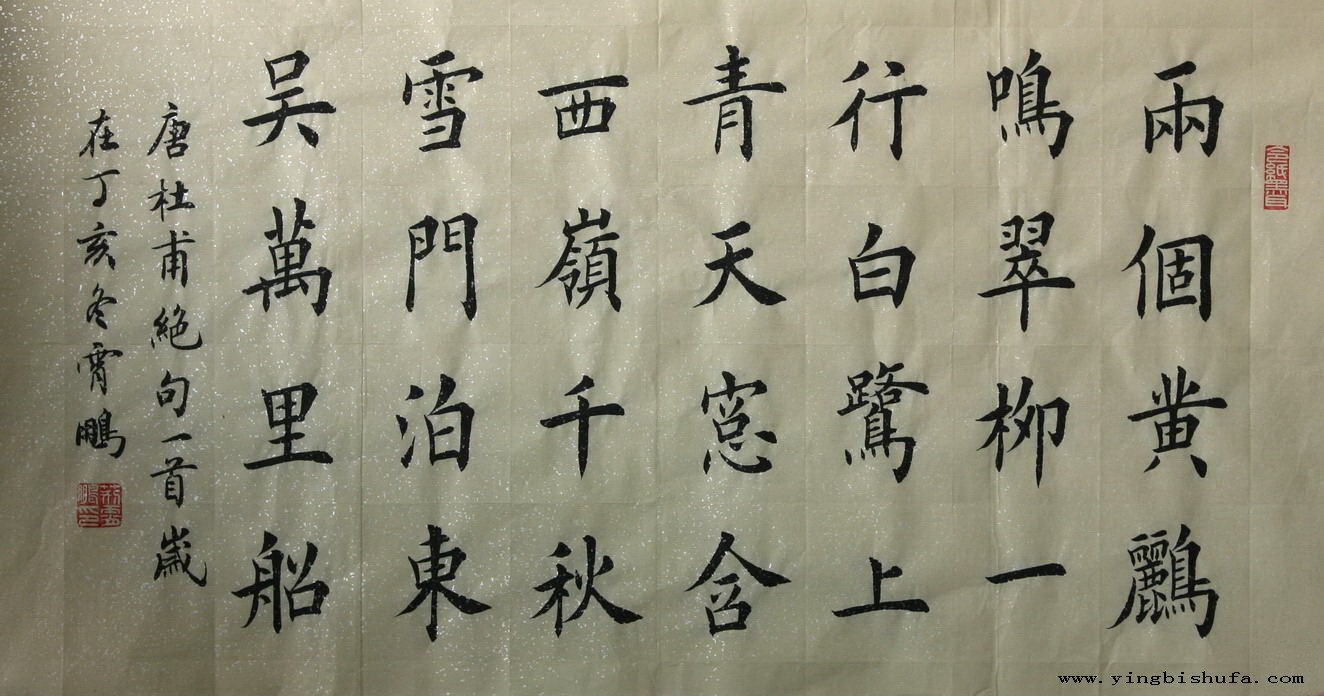 兩個黄鸝
鳴翠柳一
行白鷺上
青天窓含
西嶺千秋
雪門泊東
吴萬里船
唐杜甫絶句一首歲
在丁亥冬霄鵬
www.yingbishufa.com